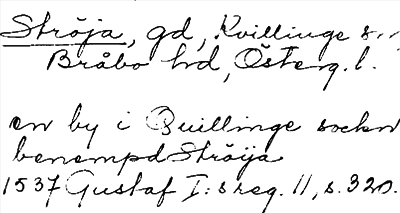 Ströja, gd, Kvillinge s..
Bråbo hd, Österg. l.
en by i Quillinge sockn
benempd Ströija
1537 Gustaf I:s reg. 11, s. 320.